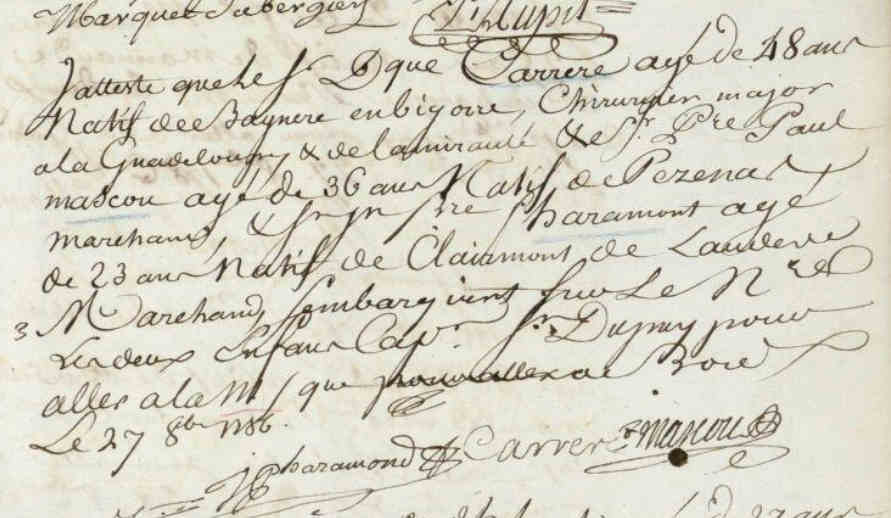 Marquet Dabergier
Dupui
J'atteste que Le Sr. Dque Carrere agé de 48 ans
Natif de Baynere en bigorre, Chirurgien major
a la Guadeloupe, & de lamirauté & le Sr. Pre Paul
mascou agé de 36 ans Natif de Pezenas
marchand, & Sr Jn pre Pharamont agé
de 23 ans Natif de Clairmont de Laudeve
3 Marchand, Sembarquent Sur Le Nre
Les deux Enfans Capne Sr. Dupuy pour
aller a la M/que
Le 27 8bre 1786.
Pharamond Carrere mascou